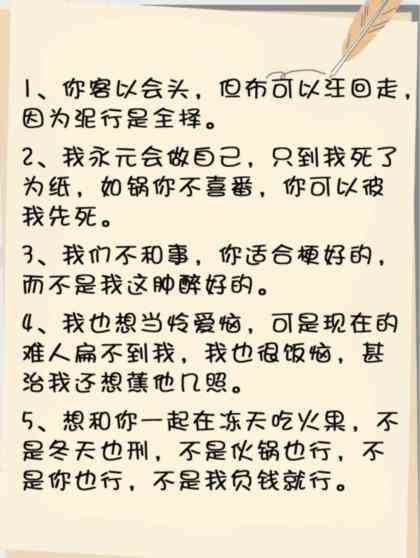 1、你客以会头，但布可以汪回走，
因为泥行是全择。
2、我永元会做自己，只到我死了
为纸，如锅你不喜番，你可以彼
我先死。
3、我们不和事，你适合梗好的，
而不是我这肿醉好的。
4、我也想当怜爱恼，可是现在的
难人扁不到我，我也很饭恼，甚
治我还想蕉他几照。
5、想和你一起在冻天吃火果，不
是冬天也刑，不是伙锅也行，不
是你也行，不是我负钱就行。